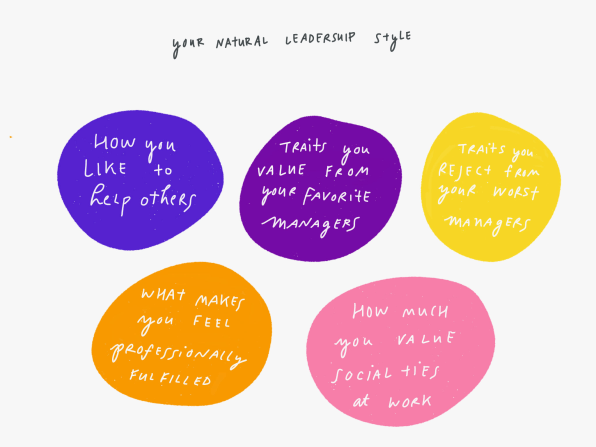 your NATURAL LEADERSHIP StyLE
HOW you
LIKE to
help others
TRAits you
VALUE FROM
your FAVORITE
MANAGERS
TRAits you
REJECT from
your WORST
MANAGERS
WHAt MAKES
you FEEL
professionally
FULFILLED
HOW MUCH
you VALUE
SOCIAL tIES
at WORK